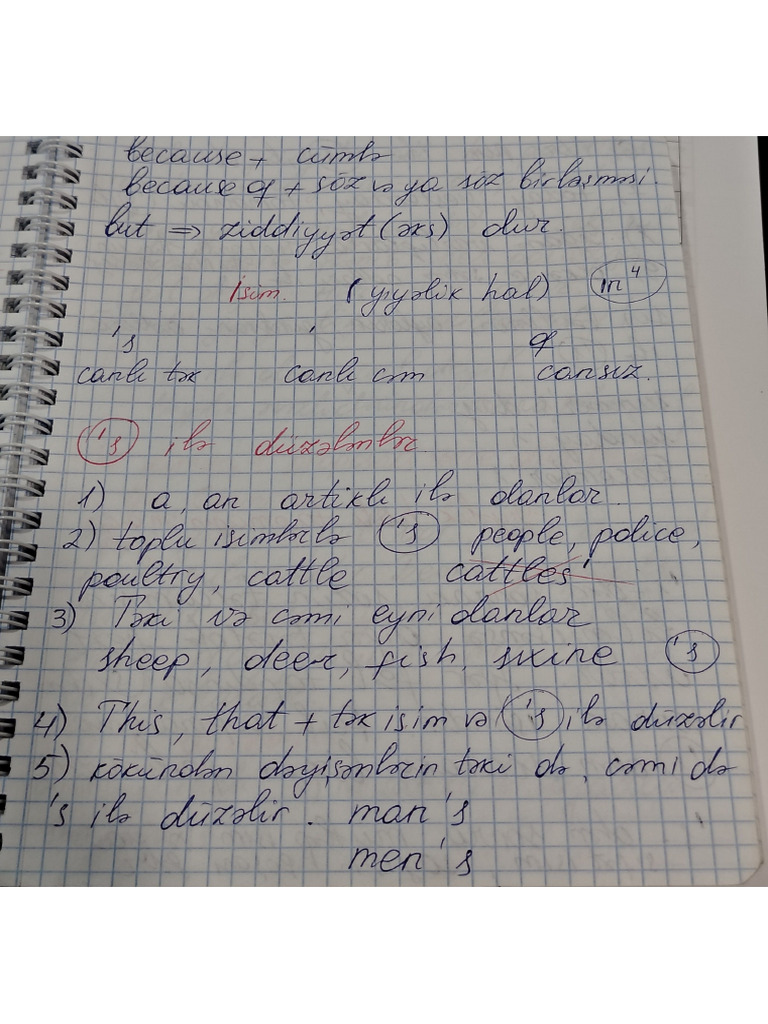 because + cümlə
because of + söz və ya söz birləşməsi.
but => ziddiyyət (əks) dur.
İsim. (yiyəlik hal) m⁴
's ' of
canlı tək canlı cəm cansız.
's ilə düzələnlər.
1) a, an artiklı ilə olanlar.
2) toplu isimlərlə 's people, police,
poultry, cattle cattles'
3) Təki və cəmi eyni olanlar
sheep, deer, fish, swine 's
4) This, that + tək isim və 's ilə düzəlir
5) kökündən dəyişənlərin təki də, cəmi də
's ilə düzəlir. man's
men's